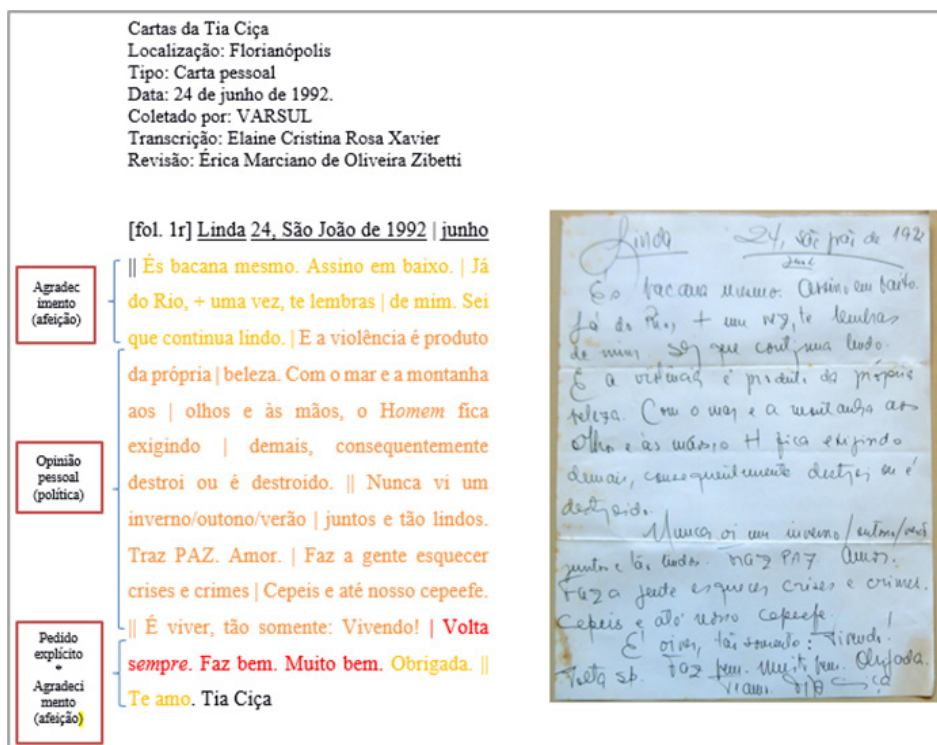 Cartas da Tia Ciça
Localização: Florianópolis
Tipo: Carta pessoal
Data: 24 de junho de 1992.
Coletado por: VARSUL
Transcrição: Elaine Cristina Rosa Xavier
Revisão: Érica Marciano de Oliveira Zibetti
[fol. 1r] Linda 24, São João de 1992 | junho
Agradec
imento
(afeição)
|| És bacana mesmo. Assino em baixo. | Já
do Rio, + uma vez, te lembras | de mim. Sei
que continua lindo. | E a violência é produto
da própria | beleza. Com o mar e a montanha
aos | olhos e às mãos, o Homem fica
exigindo | demais, consequentemente
destroi ou é destroido. || Nunca vi um
inverno/outono/verão | juntos e tão lindos.
Traz PAZ. Amor. | Faz a gente esquecer
crises e crimes | Cepeis e até nosso cepeefe.
|| É viver, tão somente: Vivendo! | Volta
sempre. Faz bem. Muito bem. Obrigada. ||
Te amo. Tia Ciça
Opinião
pessoal
(política)
Pedido
explícito
+
Agradeci
mento
(afeição)
Linda 24, São João de 1992
junh
És bacana mesmo. Assino em baixo.
Já do Rio, + um vez, te lembras
de mim. Sei que continua lindo.
E a violência é produto da própria
beleza. Com o mar e a montanha aos
olhos e às mãos, o H fica exigindo
demais, consequentemente destroi ou é
destroido.
Nunca vi um inverno/outono/verão
juntos e tão lindos. Traz PAZ. Amor.
Faz a gente esquecer crises e crimes.
Cepeis e até nosso cepeefe.
É viver, tão somente: Vivendo!
Volta sp. Faz bem. Muito bem. Obrigada.
Te amo. Tia Ciça